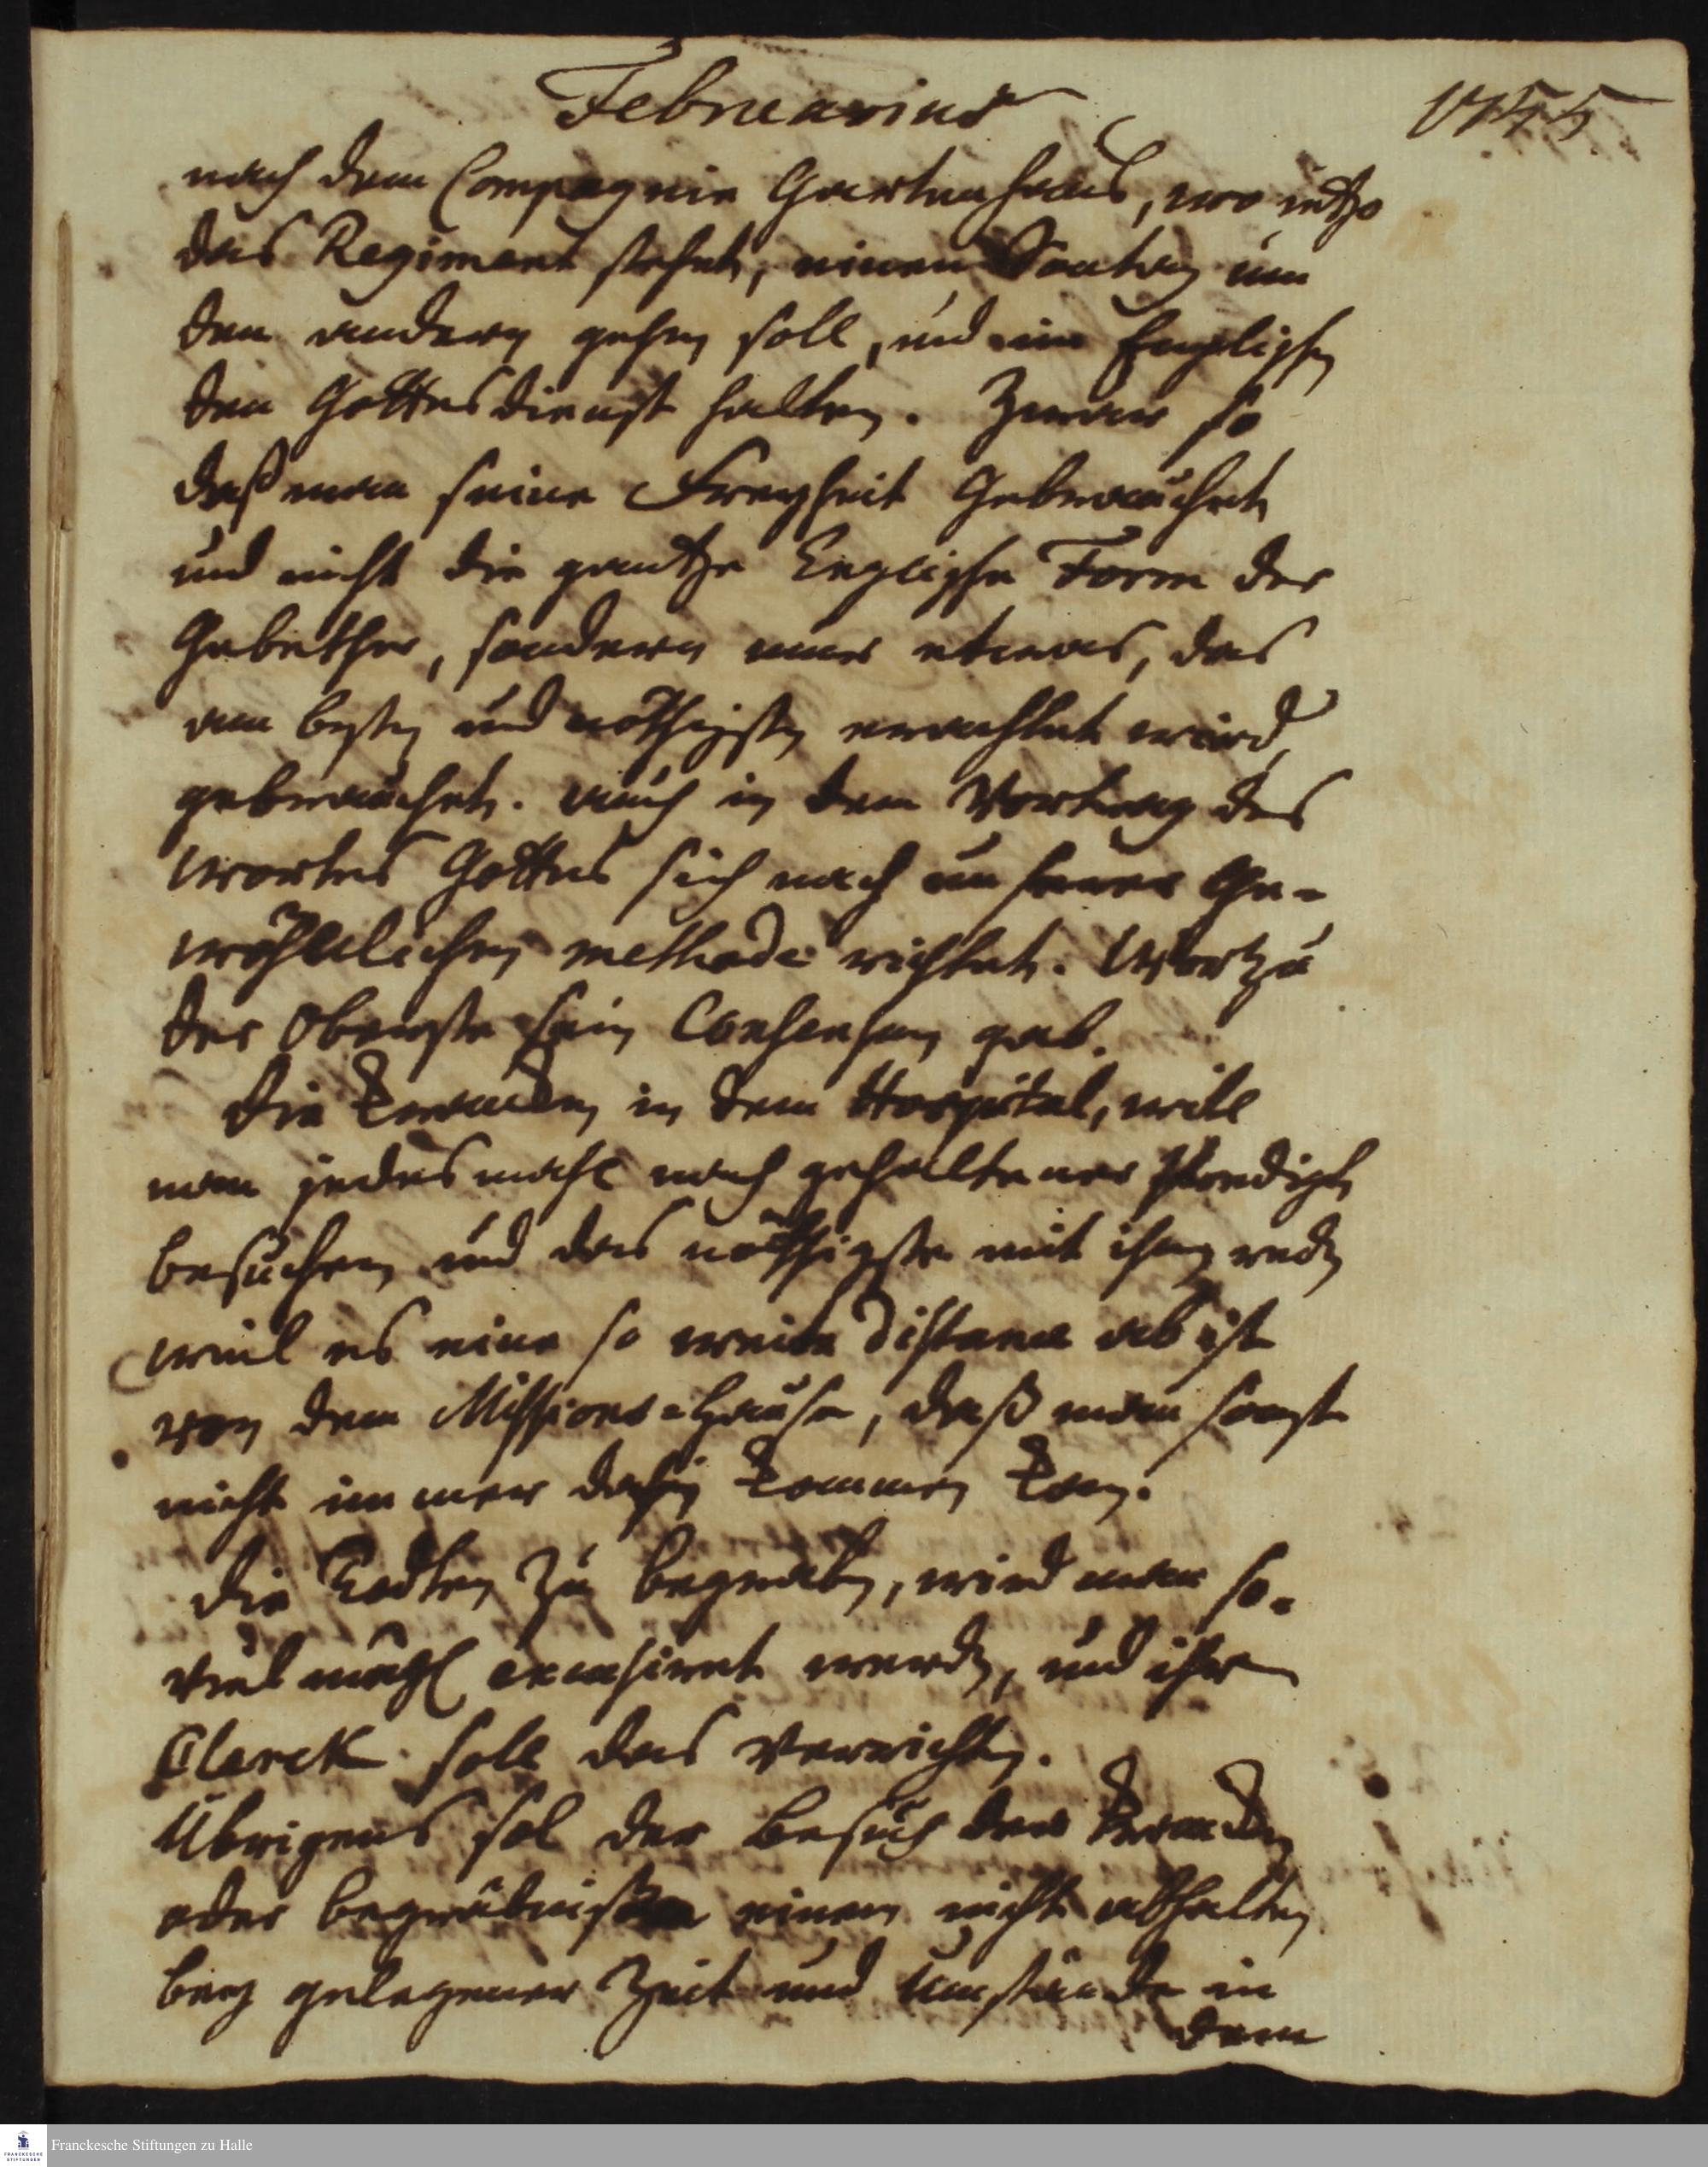 Februarius
1755
nach dem Compagnie Gartenhaus, wo jetzo
das Regiment stehet, einen Sontag um
den andern gehen soll, und im Englischen
den Gottesdienst halten. Zwar so
daß man seine Freyheit Gebrauchet
und nicht die gantze Englische Form der
Gebether, sondern nur etwas, das
am besten und nöthigsten erachtet wird,
gebrauchet. auch in dem Vortrag des
Wortes Gottes sich nach unserer Ge-
wöhnlichen methode richtet. Wortzu
der Oberste sein Consensum gab.
Die Krancken in dem Hospital, will
man jedesmahl nach gehaltener Predigt
besuchen und das nöthigste mit ihnen reden
weil es eine so weite Distance ab ist
von dem Missions-Hause, daß man sonst
nicht immer dahin kommen kan.
Die Todten zu begraben, wird man so-
viel mögl excusiret werden, und ihr
Clerck soll das verrichten.
Übrigens sol der Besuch der Krancken
oder begräbniß einen nicht abhalten
bey gelegener Zeit und Umstände in
dem
Franckesche Stiftungen zu Halle
FRANCKESCHE
STIFTUNGEN